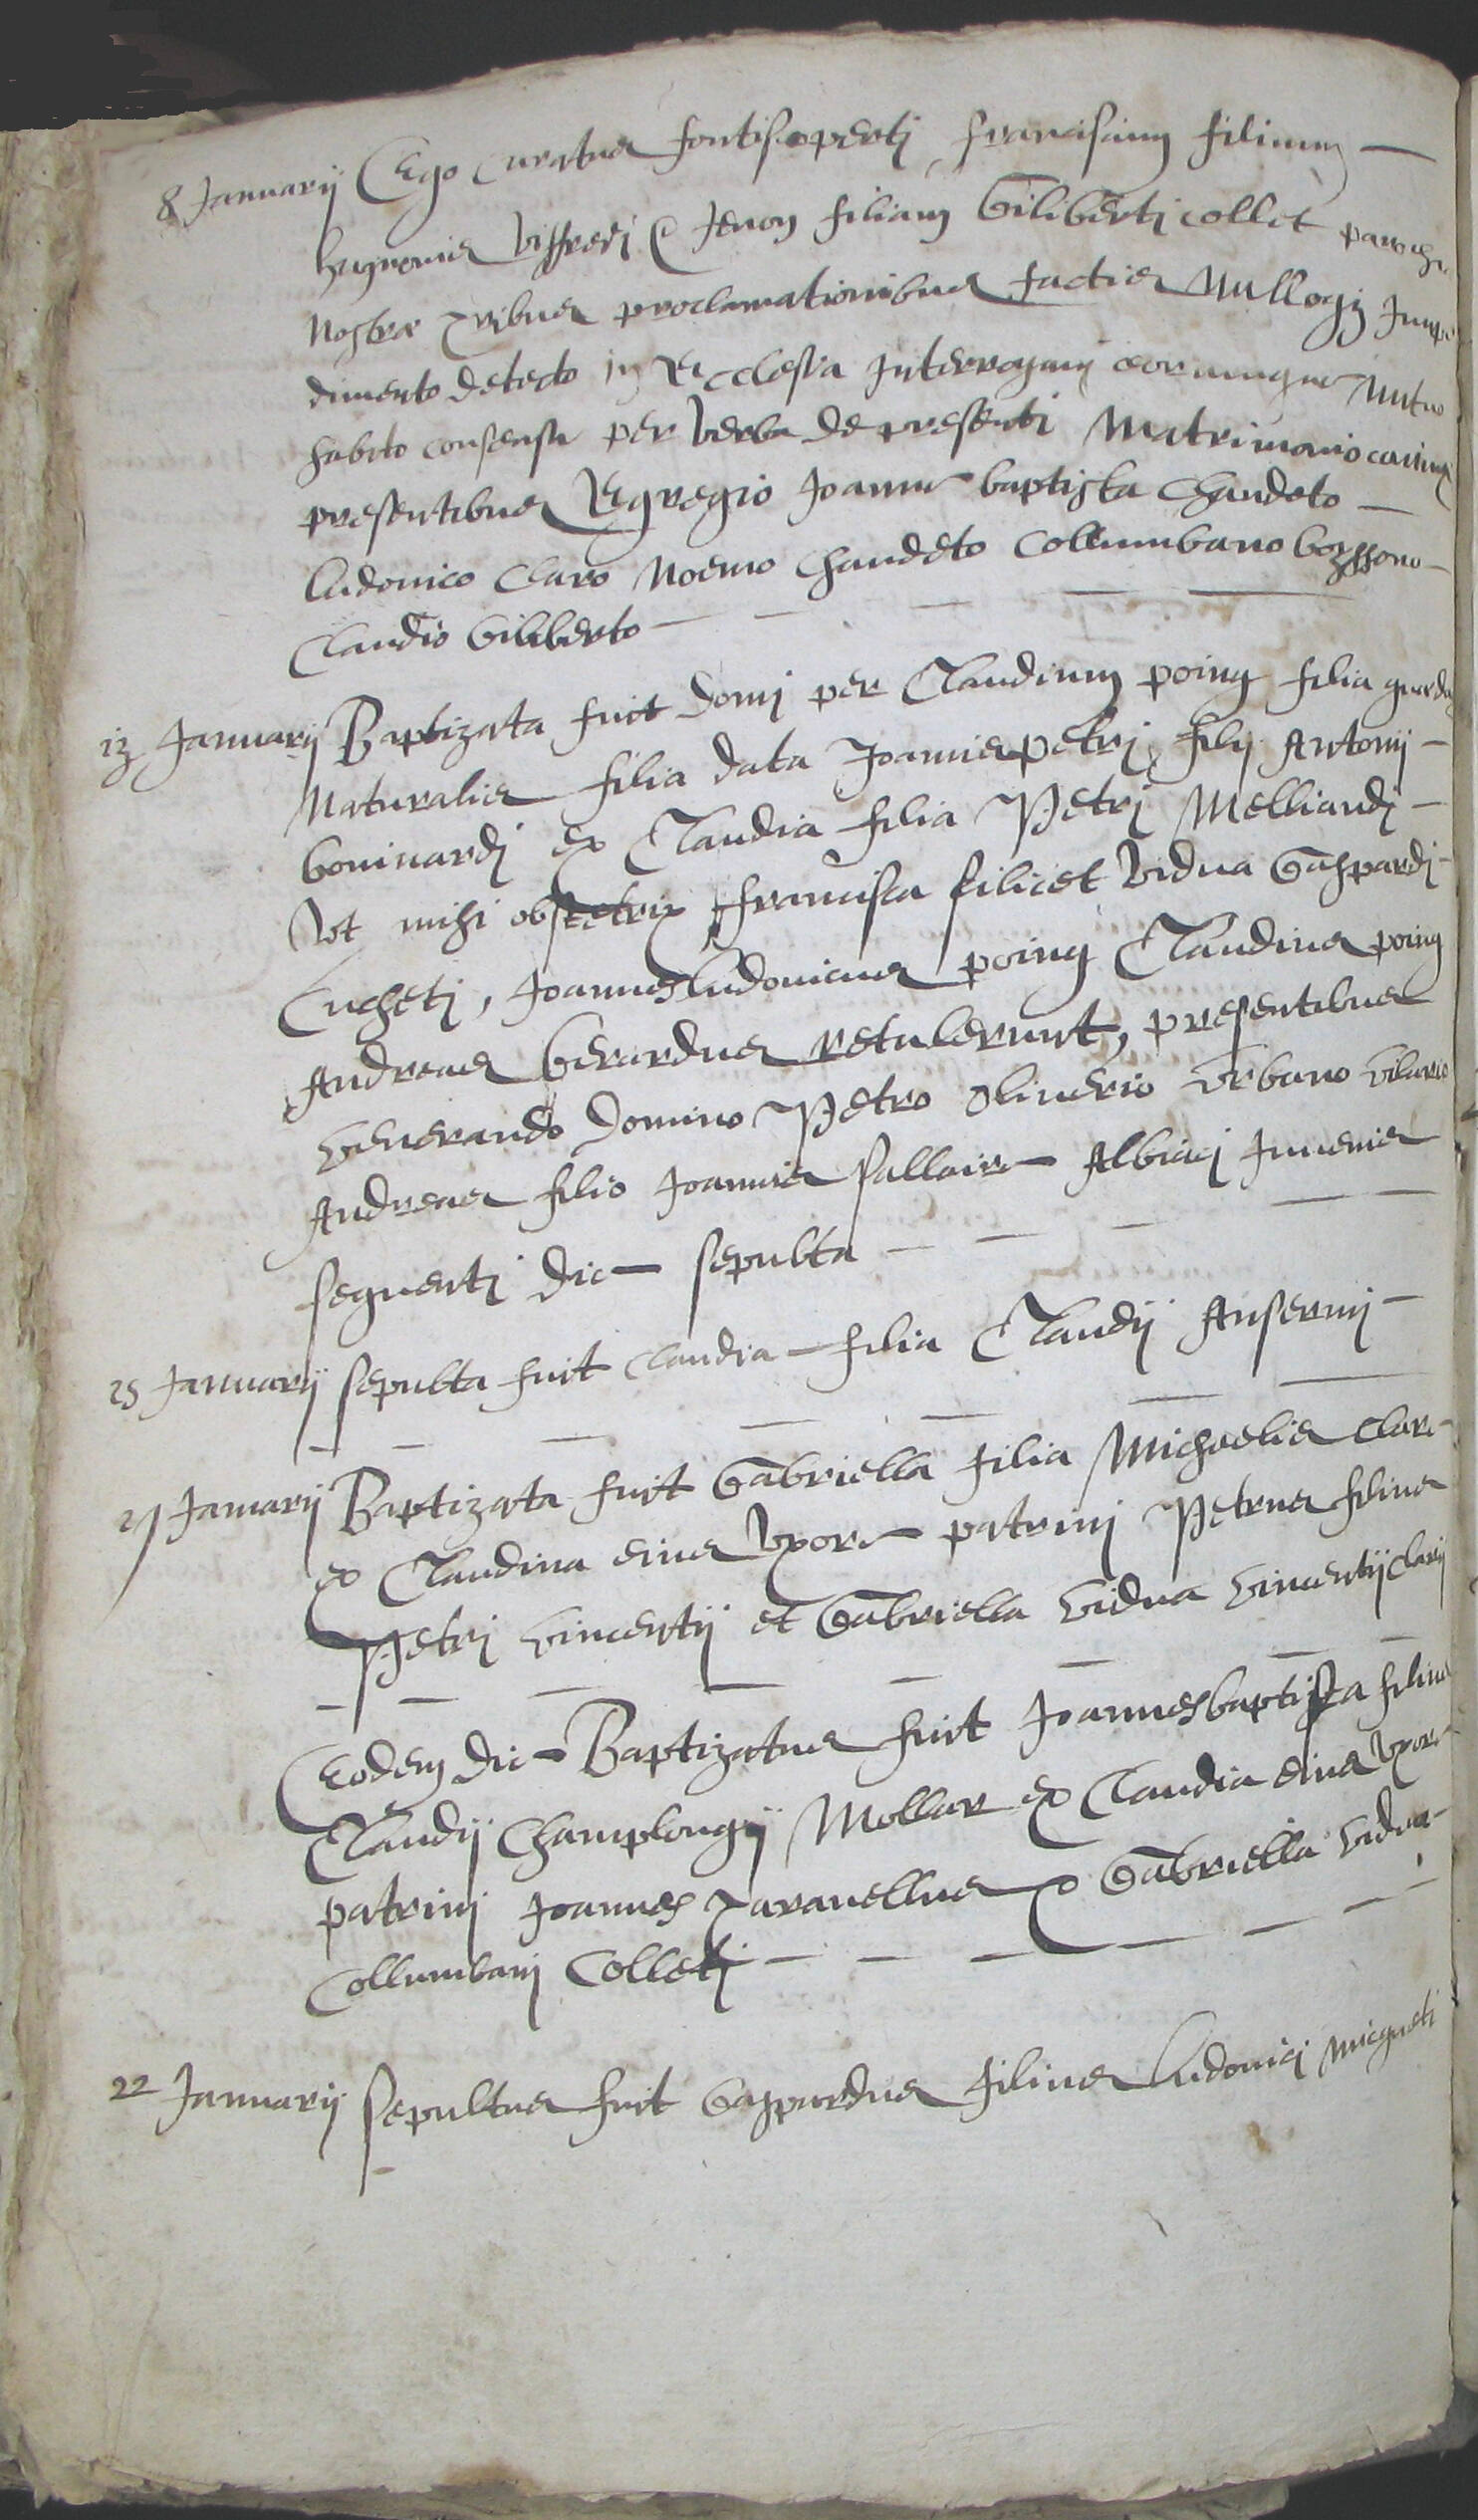 8 Januarij Ego Curatus fontisopertj franciscum filium
hugonis Viffredj & filiam Gilibertj collet parochi
Nostræ tribus proclamationibus factis Nulloq3 Impe
dimento detecto in Ecclesia Interrogavj eorumque mutuo
habito consensu per verba de presenti Matrimonio coniunxi
presentibus Egregio Joanne baptista Chandeto
Ludovico Claro Noemo Chandeto Collumbano
Claudio Giliberto
13 Januarij Baptizata fuit domj per Claudium poing filia quædam
Naturalis filia data Joannispetrj filij Antonij
bovinardj ex Claudia filia Petrj Melliandj
Vt mihi obstetrix francisca filicet vidua Gaspardj
Cuchetj, Joannesludovicus poing Claudius poing
Andreas Gerardus retulerunt, presentibus
Venerando Domino Petro Oliverio Vrbano Vilario
Andreas filio Joannis Sallaire Albiacj Juvenis
sequentj die sepulta
25 Januarij sepulta fuit Claudia filia Claudij Ansermj
27 Januarij Baptizata fuit Gabriella filia Michaelis Clare
ex Claudina eius vxore patrinj Petrus filius
Petrj Vincentij et Gabriella vidua Vincentij Clarij
Eodem die Baptizatus fuit Joannesbaptista filius
Claudij Champlongij Mollar ex Claudia eius vxore
patrinj Joannes Taravellus & Gabriella vidua
Collumbanj Colletj
22 Januarij sepultus fuit Gaspardus filius Ludovicj